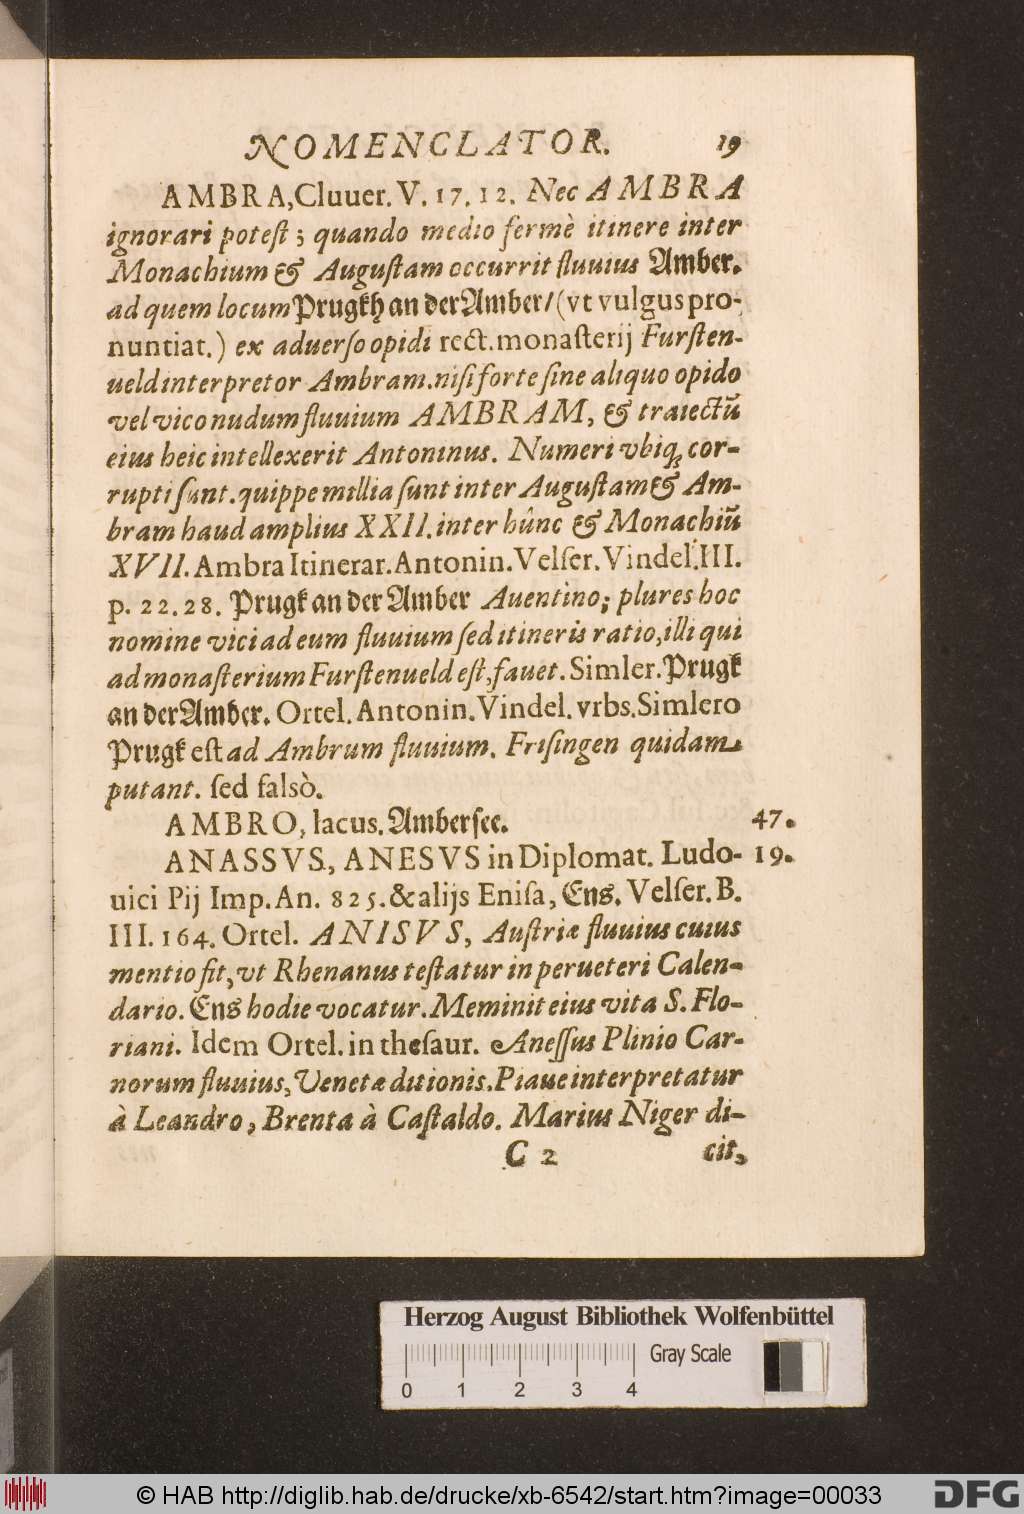 NOMENCLATOR. 19
AMBRA, Cluuer. V. 17. 12. Nec AMBRA
ignorari poteſt; quando medio fermè itinere inter
Monachium & Auguſtam occurrit fluuius Amber.
ad quem locum Prugkh an der Amber/ (vt vulgus pro-
nuntiat.) ex aduerſo opidi rect. monaſterij Furſten-
ueld interpretor Ambram. niſi forte ſine aliquo opido
vel vico nudum fluuium AMBRAM, & traiectū
eius heic intellexerit Antoninus. Numeri vbiq; cor-
rupti ſunt. quippe millia ſunt inter Auguſtam & Am-
bram haud amplius XXII. inter hûnc & Monachiū
XVII. Ambra Itinerar. Antonin. Velſer. Vindel. III.
p. 22. 28. Prugk an der Amber Auentino; plures hoc
nomine vici ad eum fluuium ſed itineris ratio, illi qui
ad monaſterium Furſtenueld eſt, fauet. Simler. Prugk
an der Amber. Ortel. Antonin. Vindel. vrbs. Simlero
Prugk eſt ad Ambrum fluuium. Friſingen quidam
putant. ſed falsò.
AMBRO, lacus. Amberſee. 47.
ANASSVS, ANESVS in Diplomat. Ludo- 19.
uici Pij Imp. An. 825. & alijs Eniſa, Ens. Velſer. B.
III. 164. Ortel. ANISVS, Auſtriæ fluuius cuius
mentio fit, vt Rhenanus teſtatur in perueteri Calen-
dario. Ens hodie vocatur. Meminit eius vita S. Flo-
riani. Idem Ortel. in theſaur. Aneſſus Plinio Car-
norum fluuius, Venetæ ditionis. Piaue interpretatur
à Leandro, Brenta à Caſtaldo. Marius Niger di-
C 2 cit,
Herzog August Bibliothek Wolfenbüttel
0 1 2 3 4 Gray Scale
© HAB http://diglib.hab.de/drucke/xb-6542/start.htm?image=00033 DFG